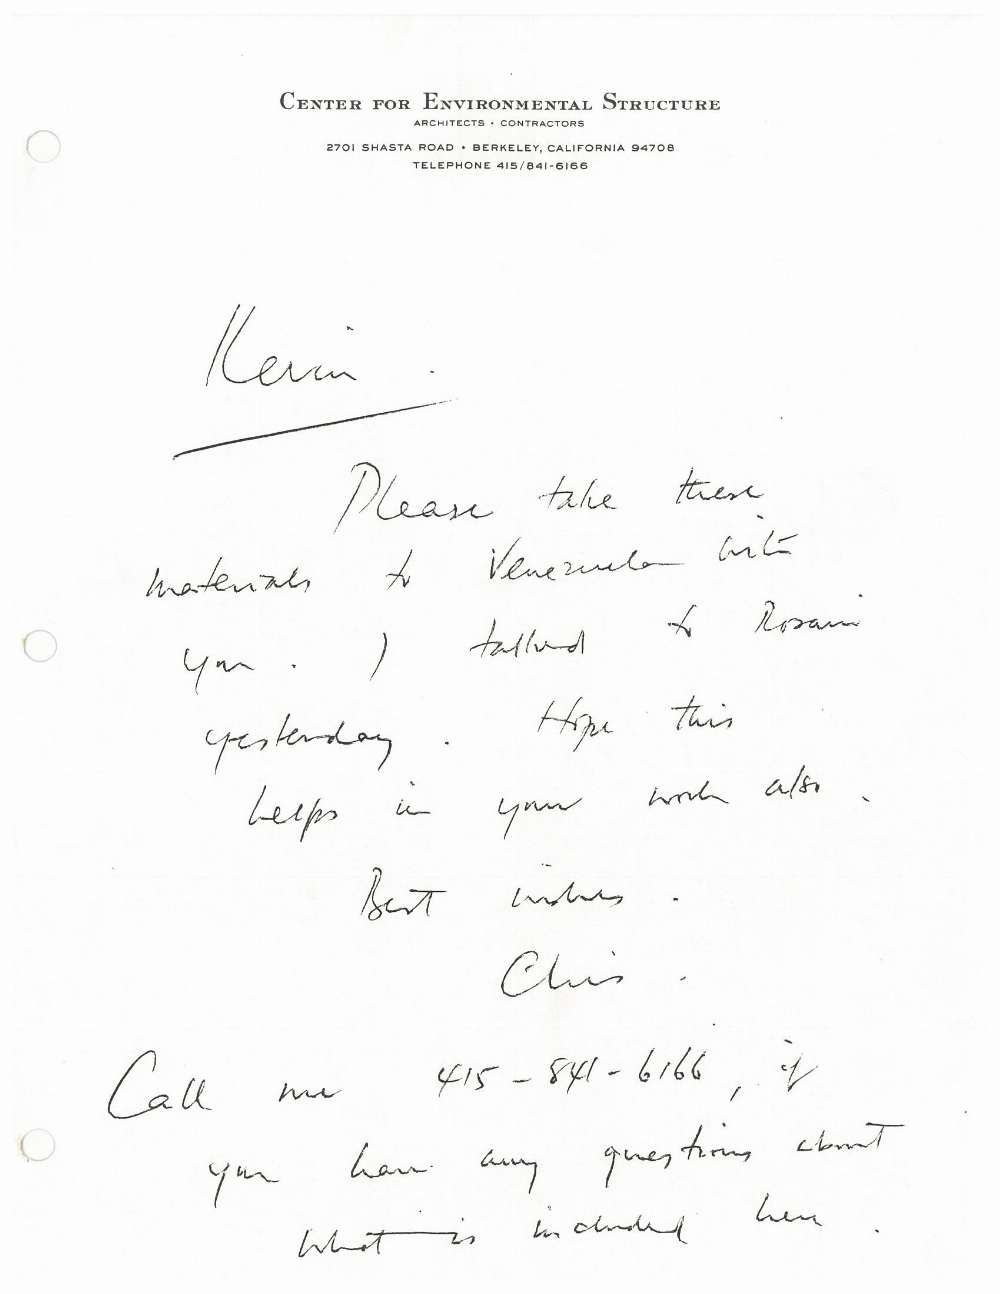 CENTER FOR ENVIRONMENTAL STRUCTURE
ARCHITECTS • CONTRACTORS
2701 SHASTA ROAD • BERKELEY, CALIFORNIA 94708
TELEPHONE 415/841-6166
Kevin.
Please take these
materials to Venezuela with
you. I talked to
yesterday. Hope this
helps in your work also.
Best wishes.
Chris.
Call me 415-841-6166, if
you have any questions about
what is included here.